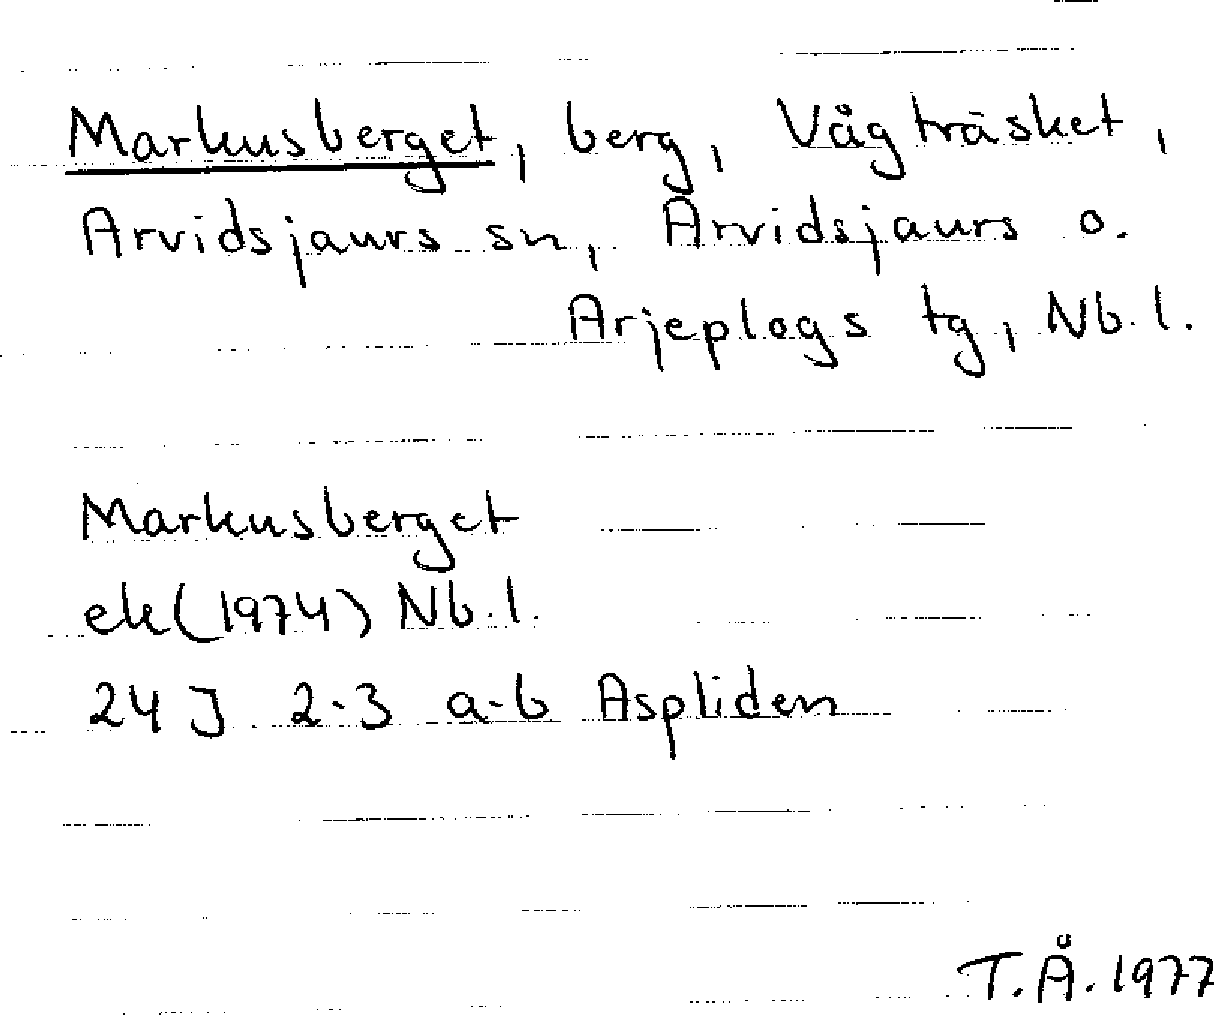 Markusberget, berg, Vågträsket,
Arvidsjaurs sn, Arvidsjaurs o.
Arjeplogs tg, Nb. l.
Markusberget
ek (1974) Nb. l.
24 J 2-3 a-b Aspliden
T.Å. 1977